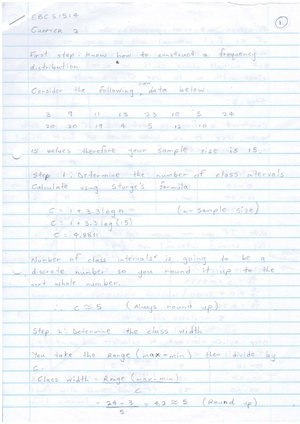 EBCS1514
1
Chapter 2
First step: Know how to construct a frequency
distribution
Consider the following raw data below.
3 9 11 13 23 10 5 24
20 20 19 4 5 12 10
15 values therefore your sample size is 15.
Step 1: Determine the number of class intervals
Calculate using Sturge's formula
C = 1 + 3.3 log n (n = Sample size)
C = 1 + 3.3 log (15)
C = 4.881
Number of class intervals is going to be a
discrete number so you round it up to the
next whole number.
∴ C ≈ 5 (Always round up)
Step 2: Determine the class width
You take the Range (max-min) then divide by
C.
Class width = Range (max-min)
C
= 24 - 3 = 4.2 ≈ 5 (Round up)
5